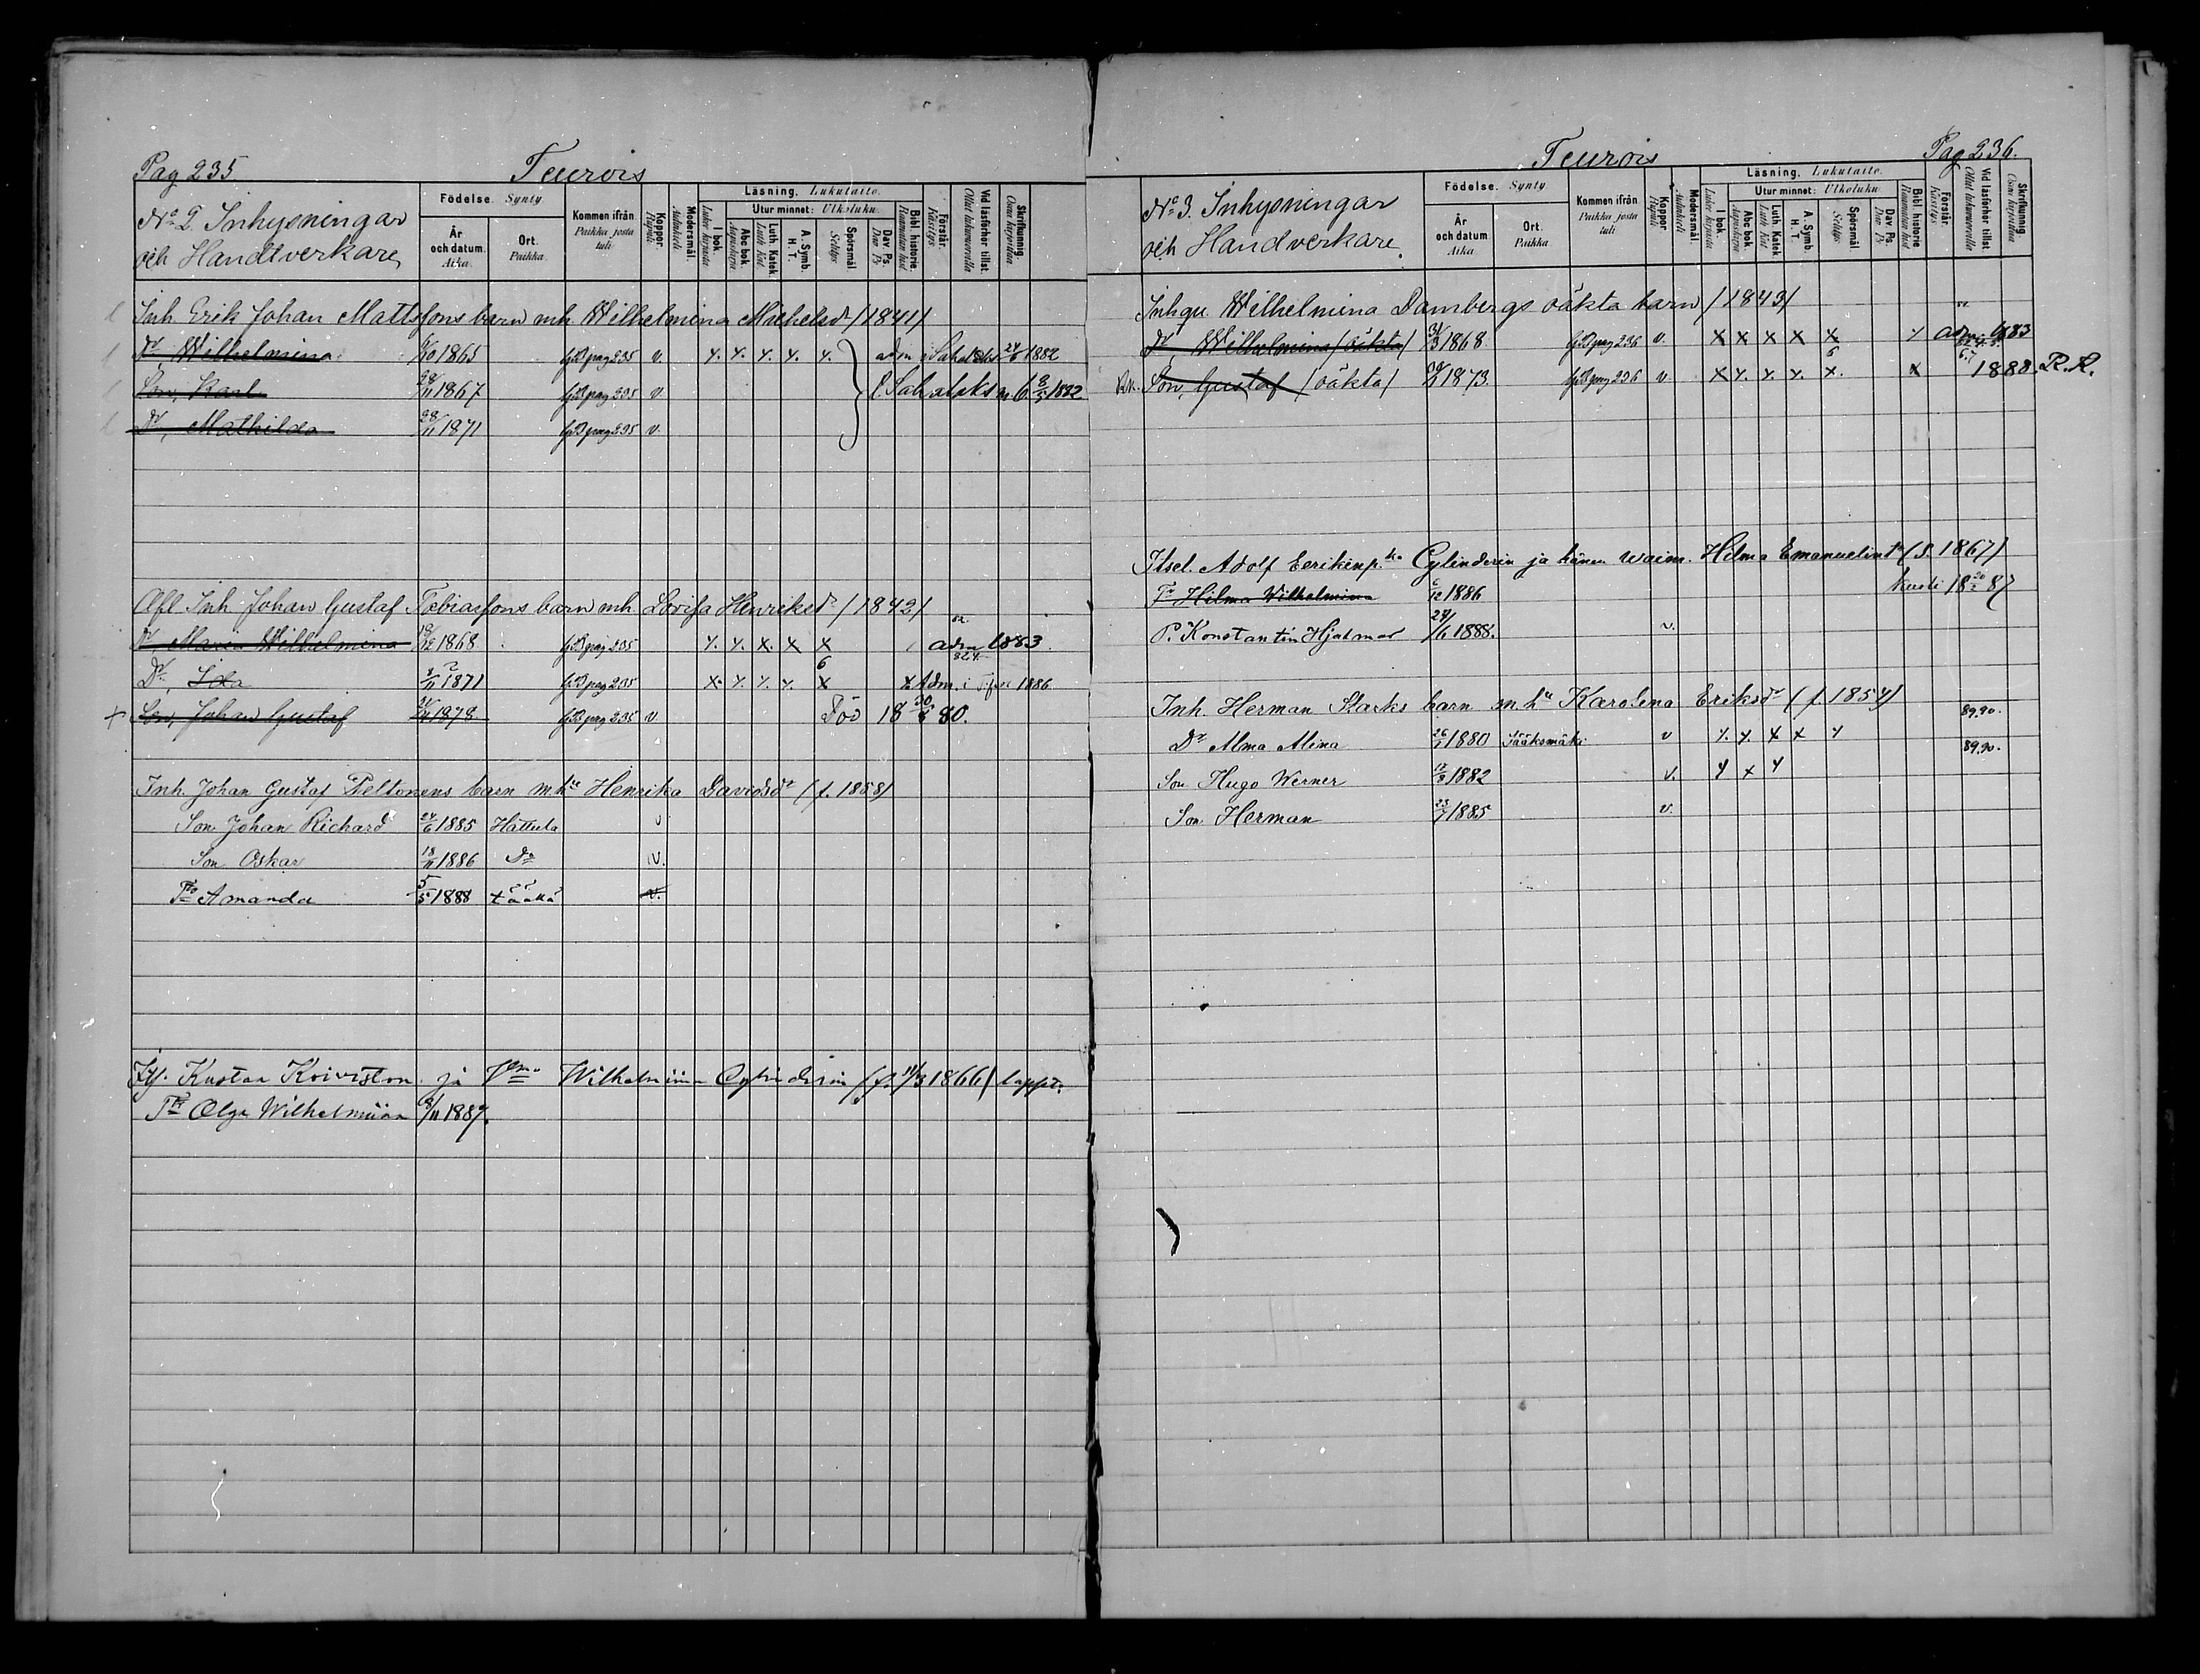 Pag 235 Teurois
No 2. Inhysningar
och Handtverkare
Födelse. Synty.
År och datum. Aika.
Ort. Paikka.
Kommen ifrån. Paikka josta tuli.
Koppor. Rupuli
Modersmål. Äidinkieli
Läsning. Lukutaito.
I bok. Lukee kirjasta
Utur minnet: Ulkoluku.
Abc bok. Aapiskirja
Luth. Katek. Luth. Kat.
A. Symb. H. T.
Spörsmål Selitys
Dav. Ps. Dav. Ps.
Bibl. historie. Raamatun hist.
Förstår. Käsitys.
Vid läsförhör tillst. Ollut lukuwuorolla
Skrifkunnig. Osaa kirjoittaa
Inh Erik Johan Mattssons barn mh Wilhelmina Michelsdr (1841)
Dr Wilhelmina /10 1865 HB pag 235 v. adm i Sahalaks 24/6 1882
Son, Karl 29/11 1867 HB pag 235 v f. Sahalaks n 6 8/5 1882
Dr, Mathilda 28/11 1871 HB pag 235 v.
Afl Inh Johan Gustaf Tobiassons barn mh Lovisa Henriksdr (1842)
Dr Maria Wilhelmina 19/12 1868 HB pag 235 adm 1883
Dr, Ida 8/11 1871 HB pag 235 6 Adm. i 1886
+ Son, Johan Gustaf 1878 HB pag 235 v Död 18 30/6 80.
Inh. Johan Gustaf Peltonens barn m hu Henrika Davidsdr (f. 1858)
Son Johan Richard 24/6 1885 Hattula v
Son Oskar 18/11 1886 Do v.
Tr Amanda 5/5 1888 täällä v.
Its. Kustaa Koiviston ja Vmo Wilhelmiina Cylinderin (f. 11/3 1866) lapset.
Tr Olga Wilhelmiina /11 1887.
Teurois Pag 236.
No 3. Inhysningar
och Handverkare.
Födelse. Synty
År och datum Aika
Ort. Paikka.
Kommen ifrån Paikka josta tuli.
Koppor Rupuli
Modersmål. Äidinkieli
Läsning. Lukutaito.
I bok. Lukee kirjasta
Utur minnet: Ulkoluku.
Abc bok. Aapiskirja
Luth. Katek. Luth Kat.
A. Symb. H. T.
Spörsmål Selitys
Dav. Ps. Dav Ps
Bibl. historie Raamatun hist.
Förstår. Käsitys
Vid läsförhör tillst. Ollut lukuwuorolla
Skrifkunning. Osaa kirjoittaa
Inhqu Wilhelmina Dambergs oäkta barn (1843)
Dr, Wilhelmina (oäkta) 31/3 1868 HB pag 236 v. adm 1883
Son, Gustaf (oäkta) 1873 HB pag 236 v. 6 1888 R.K.
Itsel. Adolf Eerikinp.ka Cylinderin ja hänen waim. Hilma Emanuelint (s. 1867)
Tr Hilma Wilhelmina 6/12 1886 kuoli 18 20/2 87
P. Konstantin Hjalmar 24/6 1888. v.
Inh. Herman Starks barn m. hu Karolina Eriksdr (f. 1854)
Dr Alma Alina 26/1 1880 Sääksmäki v 89.90.
Son Hugo Werner 17/8 1882 v. 89.90.
Son Herman 23/7 1885 v.